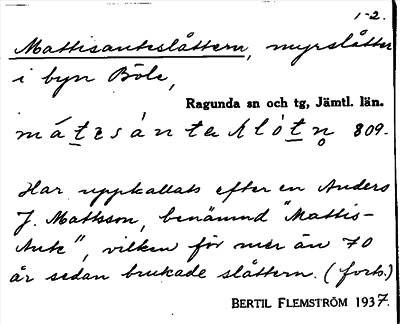 1-2.
Mattisanteslåttern, myrslåtter
i byn Böle,
Ragunda sn och tg, Jämtl. län.
mátɪsántaslótn̥ 809.
Har uppkallats efter en Anders
J. Mattsson, benämnd "Mattis-
Ante", vilken för mer än 70
år sedan brukade slåttern. (forts.)
BERTIL FLEMSTRÖM 1937.